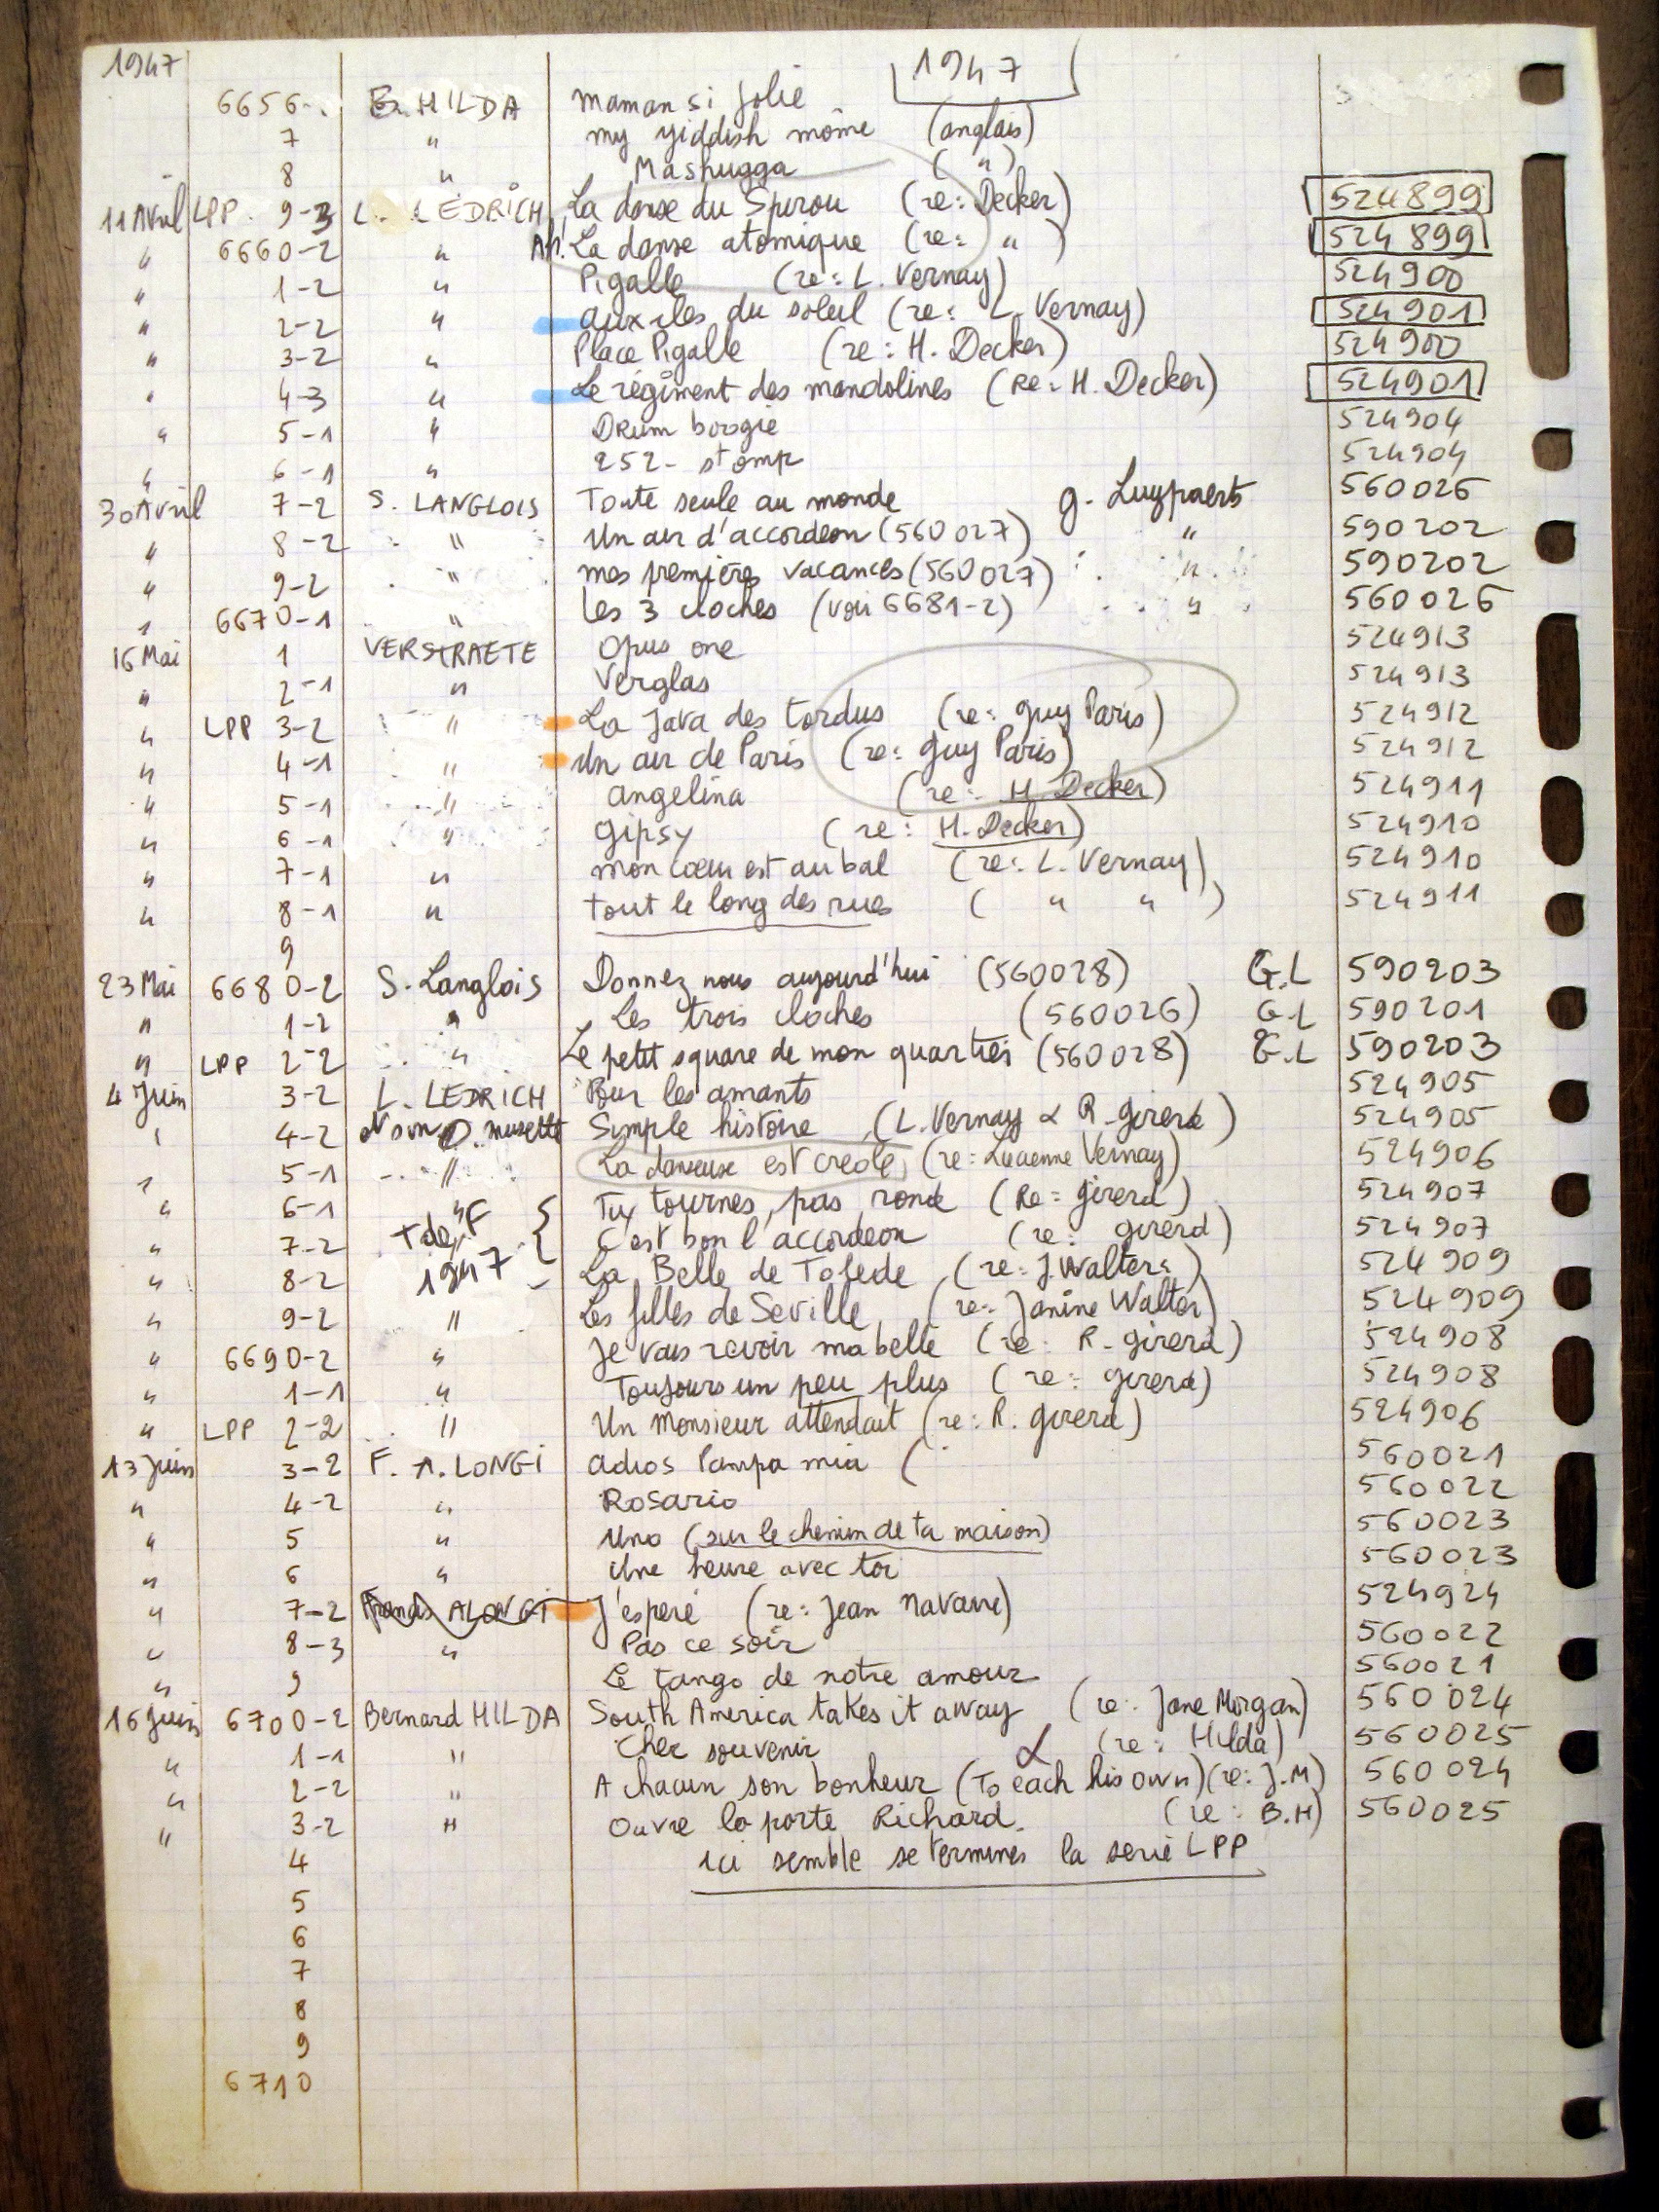 1947 1947
6656-. B. HILDA maman si jolie
7 " my yiddish môme (anglais)
8 " Mashugga ( " )
11 Avril LPP. 9-3 L. LEDRICH La danse du Spirou (re: Decker) 524899
" 6660-2 " Ah! La danse atomique (re: " ) 524899
" 1-2 " Pigalle (re: L. Vernay) 524900
" 2-2 " aux iles du soleil (re: L. Vernay) 524901
" 3-2 " Place Pigalle (re: H. Decker) 524900
" 4-3 " Le régiment des mandolines (Re: H. Decker) 524901
" 5-1 " DRum boogie 524904
" 6-1 " 252- stomp 524904
30 Avril 7-2 S. LANGLOIS Toute seule au monde G. Luypaerts 560026
" 8-2 " Un air d'accordeon (560027) " 590202
" 9-2 " mes premières vacances (560027) " 590202
" 6670-1 " Les 3 cloches (voir 6681-2) " 560026
16 Mai 1 VERSTRAETE Opus one 524913
" 2-1 " Verglas 524913
" LPP 3-2 " La Java des tordus (re: Guy Paris) 524912
" 4-1 " Un air de Paris (re: Guy Paris) 524912
" 5-1 " angelina (re: H. Decker) 524911
" 6-1 " Gipsy (re: H. Decker) 524910
" 7-1 " mon cœur est au bal (re: L. Vernay) 524910
" 8-1 " tout le long des rues ( " " ) 524911
9
23 Mai 6680-2 S. Langlois Donnez nous aujourd'hui (560028) G.L 590203
" 1-2 " Les trois cloches (560026) G.L 590201
" LPP 2-2 " Le petit square de mon quartier (560028) G.L 590203
4 Juin 3-2 L. LEDRICH Pour les amants 524905
" 4-2 et son O. musette Simple histoire (L. Vernay & R. Girerd) 524905
" 5-1 " La danseuse est creole (re: Lucienne Vernay) 524906
" 6-1 " Tu tournes pas rond (Re: Girerd) 524907
" 7-2 + de F " C'est bon l'accordeon (re: Girerd) 524907
" 8-2 1947 La Belle de Tolede (re: J. Walter) 524909
" 9-2 " Les filles de Seville (re: Janine Walter) 524909
" 6690-2 " Je vais revoir ma belle (re: R. Girerd) 524908
" 1-1 " Toujours un peu plus (re: Girerd) 524908
" LPP 2-2 " Un Monsieur attendait (re: R. Girerd) 524906
13 Juin 3-2 F. A. LONGI adios Pampa mia ( 560021
" 4-2 " Rosario 560022
" 5 " Uno (sur le chemin de ta maison) 560023
" 6 " Une heure avec toi 560023
" 7-2 Francis ALONGI J'espere (re: Jean Navarre) 524924
" 8-3 " Pas ce soir 560022
" 9 Le tango de notre amour 560021
16 Juin 6700-2 Bernard HILDA South America takes it away (re: Jane Morgan) 560024
" 1-1 " Cher souvenir (re: Hilda) 560025
" 2-2 " A chacun son bonheur (To each his own) (re: J.M) 560024
" 3-2 " Ouvre la porte Richard. (re: B.H) 560025
4 ici semble se terminer la serie LPP
5
6
7
8
9
6710